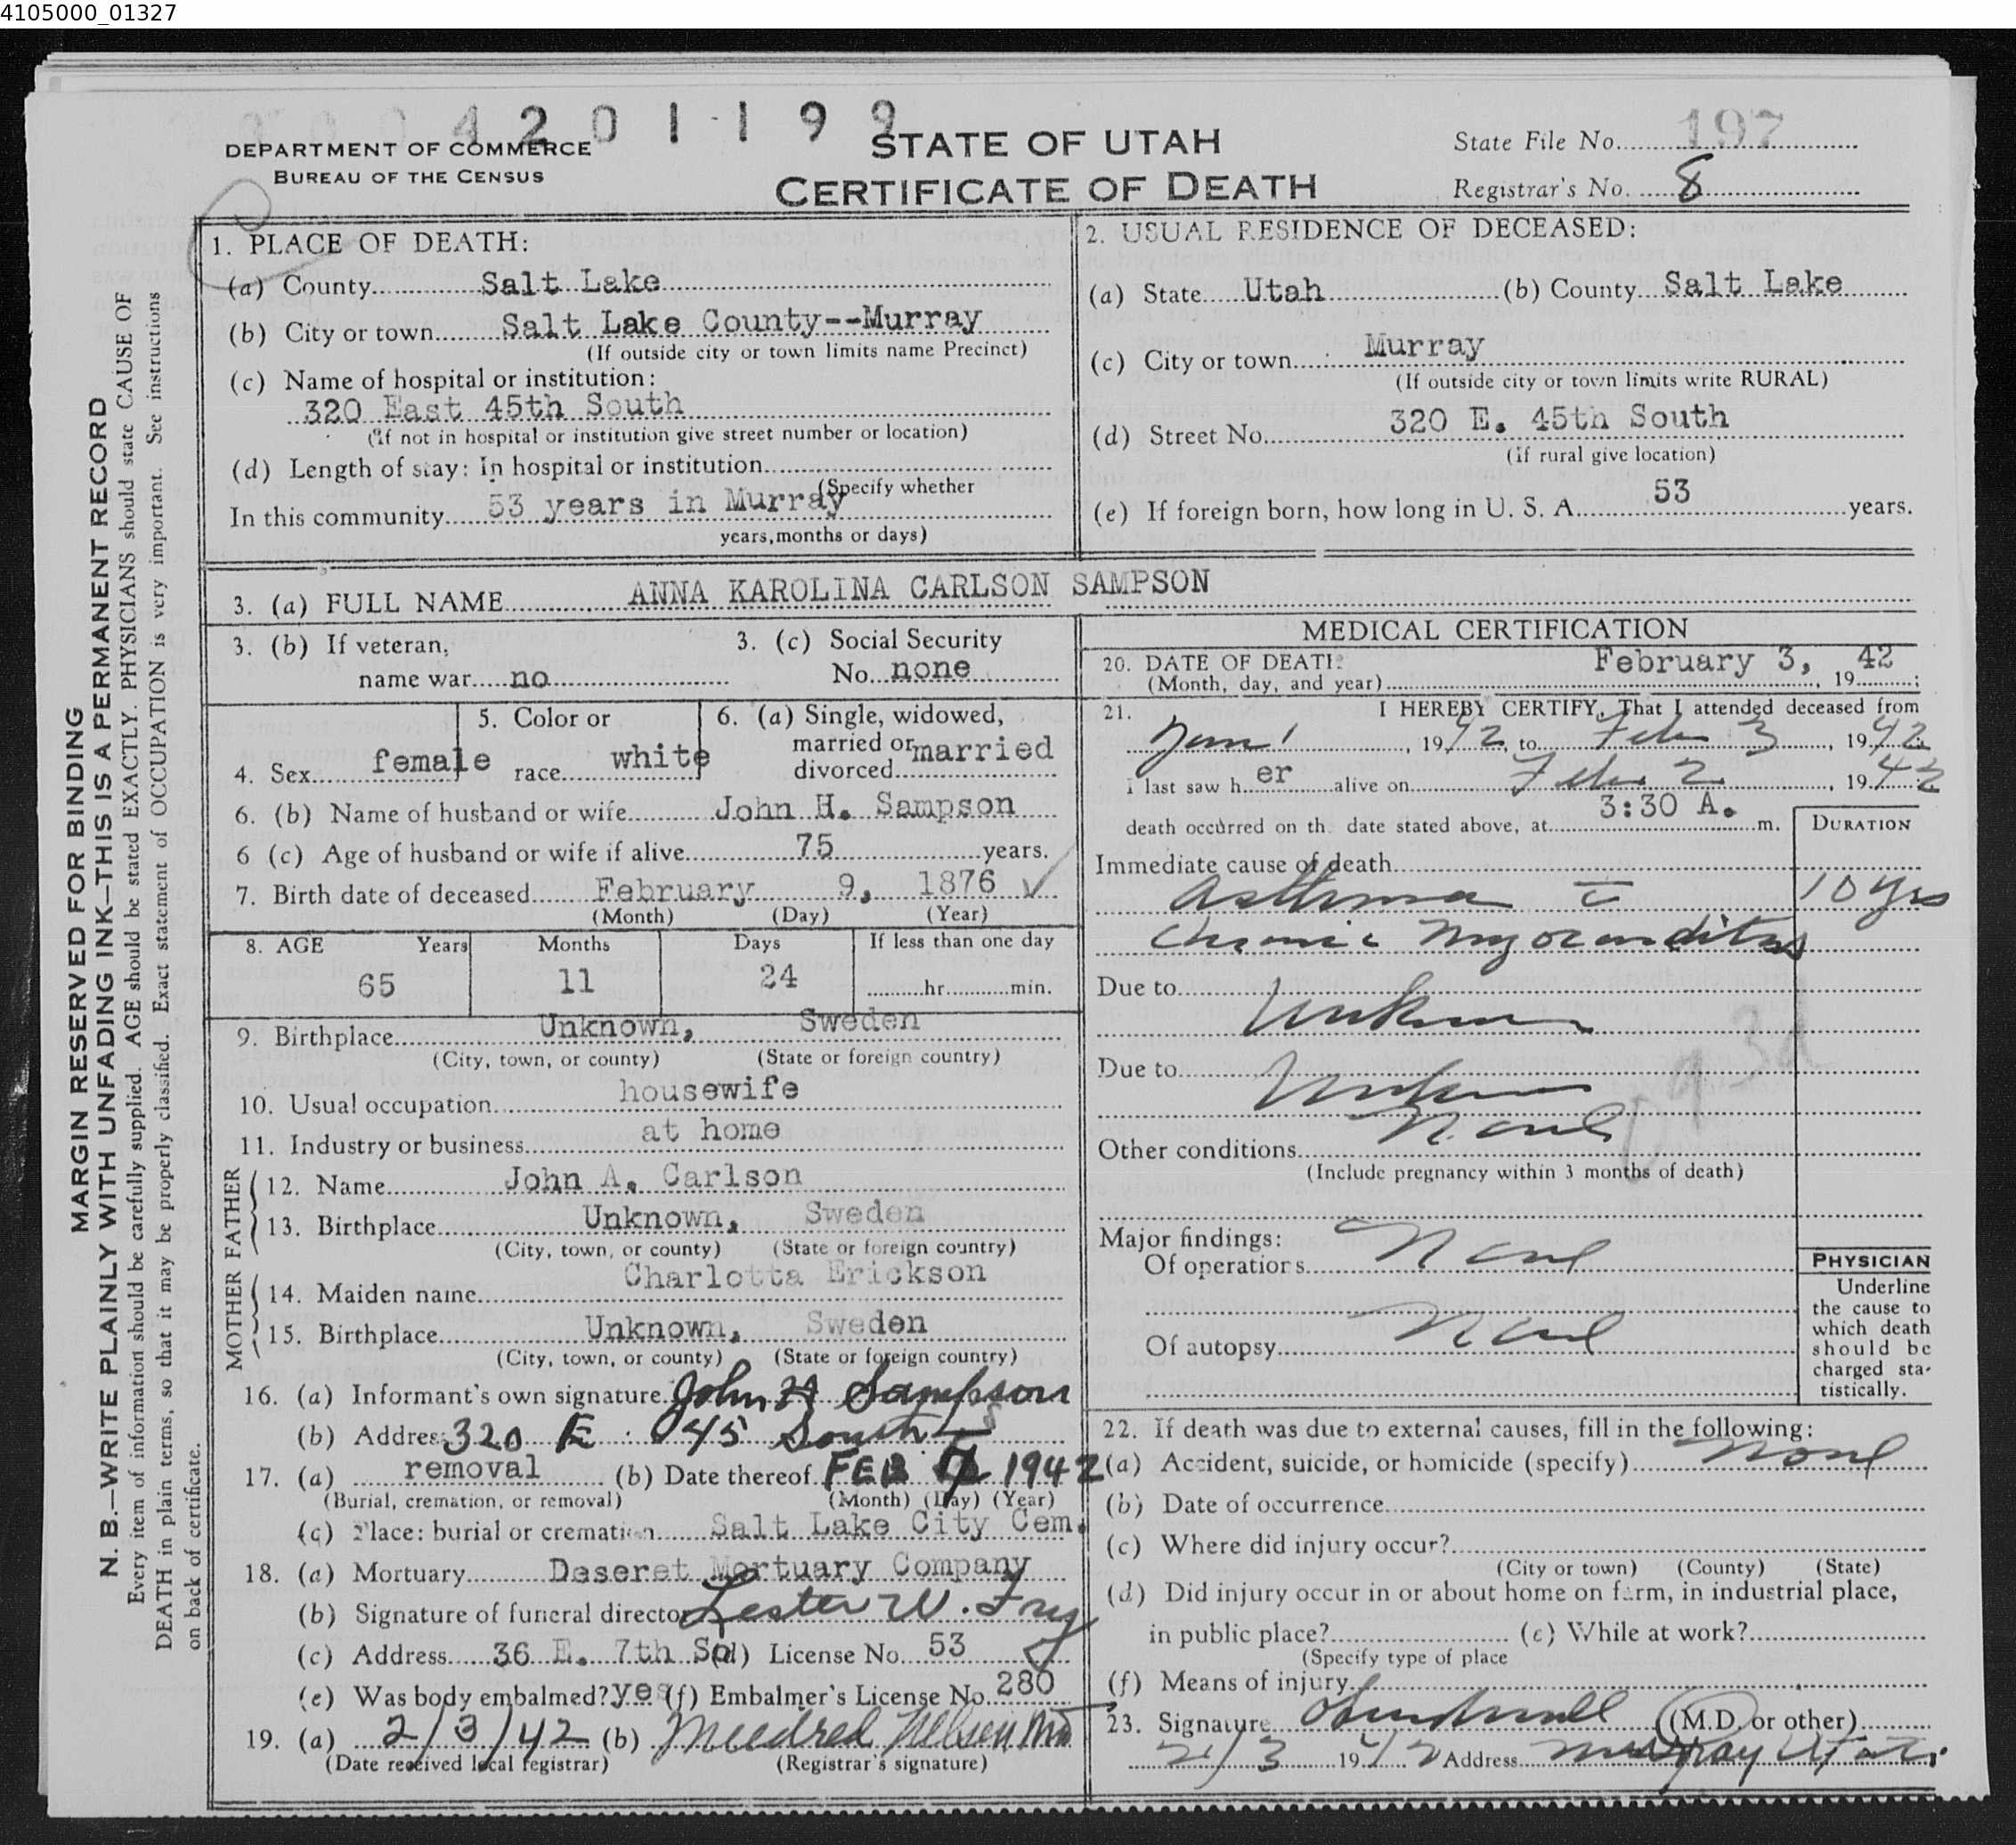 4105000_01327
4 2 0 1 1 9 9
DEPARTMENT OF COMMERCE
BUREAU OF THE CENSUS
STATE OF UTAH
CERTIFICATE OF DEATH
State File No. 197
Registrar's No. 8
MARGIN RESERVED FOR BINDING
N. B.—WRITE PLAINLY WITH UNFADING INK—THIS IS A PERMANENT RECORD
Every item of information should be carefully supplied. AGE should be stated EXACTLY. PHYSICIANS should state CAUSE OF
DEATH in plain terms, so that it may be properly classified. Exact statement of OCCUPATION is very important. See instructions
on back of certificate.
1. PLACE OF DEATH:
(a) County Salt Lake
(b) City or town Salt Lake County--Murray
(If outside city or town limits name Precinct)
(c) Name of hospital or institution:
320 East 45th South
(If not in hospital or institution give street number or location)
(d) Length of stay: In hospital or institution
(Specify whether
In this community 53 years in Murray
years, months or days)
2. USUAL RESIDENCE OF DECEASED:
(a) State Utah (b) County Salt Lake
(c) City or town Murray
(If outside city or town limits write RURAL)
(d) Street No. 320 E. 45th South
(If rural give location)
(e) If foreign born, how long in U. S. A. 53 years.
3. (a) FULL NAME ANNA KAROLINA CARLSON SAMPSON
3. (b) If veteran,
name war no
3. (c) Social Security
No. none
4. Sex female
5. Color or
race white
6. (a) Single, widowed,
married or
divorced married
6. (b) Name of husband or wife John H. Sampson
6 (c) Age of husband or wife if alive 75 years.
7. Birth date of deceased February 9, 1876 ✓
(Month) (Day) (Year)
8. AGE Years Months Days If less than one day
65 11 24 hr. min.
9. Birthplace Unknown, Sweden
(City, town, or county) (State or foreign country)
10. Usual occupation housewife
11. Industry or business at home
FATHER
12. Name John A. Carlson
13. Birthplace Unknown, Sweden
(City, town, or county) (State or foreign country)
MOTHER
14. Maiden name Charlotta Erickson
15. Birthplace Unknown, Sweden
(City, town, or county) (State or foreign country)
16. (a) Informant's own signature John H Sampson
(b) Address 320 E 45 South
17. (a) removal (b) Date thereof FEB 1942
(Burial, cremation, or removal) (Month) (Day) (Year)
(c) Place: burial or cremation Salt Lake City Cem.
18. (a) Mortuary Deseret Mortuary Company
(b) Signature of funeral director Lester W. Fry
(c) Address 36 E. 7th So (d) License No. 53
(e) Was body embalmed? yes (f) Embalmer's License No. 280
19. (a) 2/3/42 (b) Mildred Nelson
(Date received local registrar) (Registrar's signature)
MEDICAL CERTIFICATION
20. DATE OF DEATH
(Month, day, and year) February 3, 1942;
21. I HEREBY CERTIFY, That I attended deceased from
Jan 1, 1942, to Feb 3, 1942.
I last saw her alive on Feb 2, 1942
death occurred on the date stated above, at 3:30 A. m.
DURATION
Immediate cause of death
Asthma c̄ 10 yrs
Chronic Myocarditis
Due to Unknown
Due to Unknown
93d
Other conditions None
(Include pregnancy within 3 months of death)
Major findings:
Of operations None
Of autopsy None
PHYSICIAN
Underline
the cause to
which death
should be
charged sta-
tistically.
22. If death was due to external causes, fill in the following:
(a) Accident, suicide, or homicide (specify) None
(b) Date of occurrence
(c) Where did injury occur?
(City or town) (County) (State)
(d) Did injury occur in or about home on farm, in industrial place,
in public place? (e) While at work?
(Specify type of place
(f) Means of injury
23. Signature (M.D. or other)
2/3 1942 Address Murray Utah